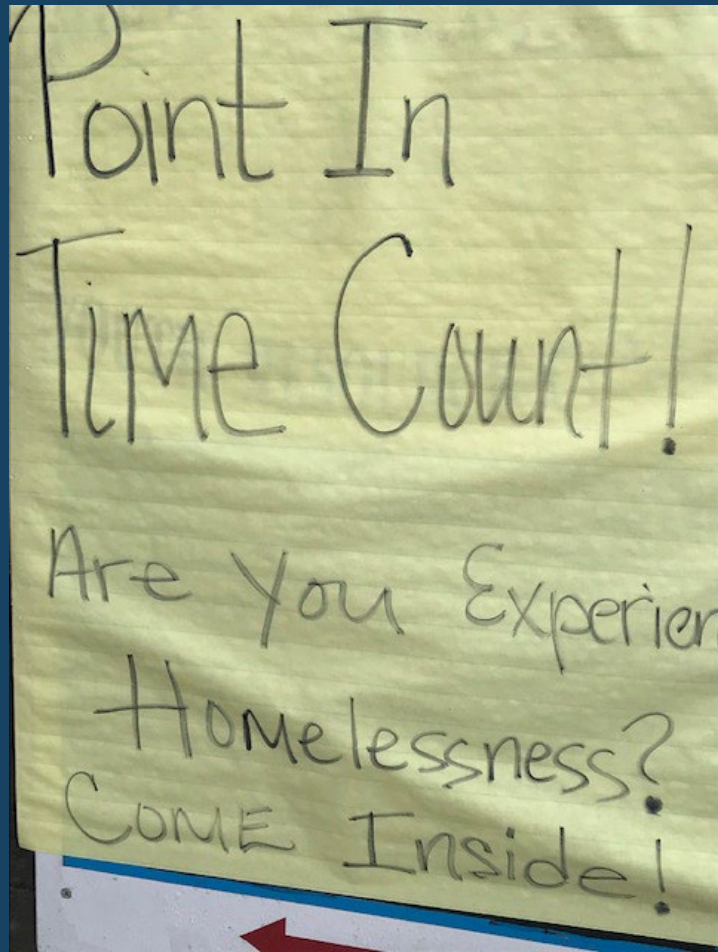 Point In
Time Count!
Are You Experien
Homelessness?
COME Inside!